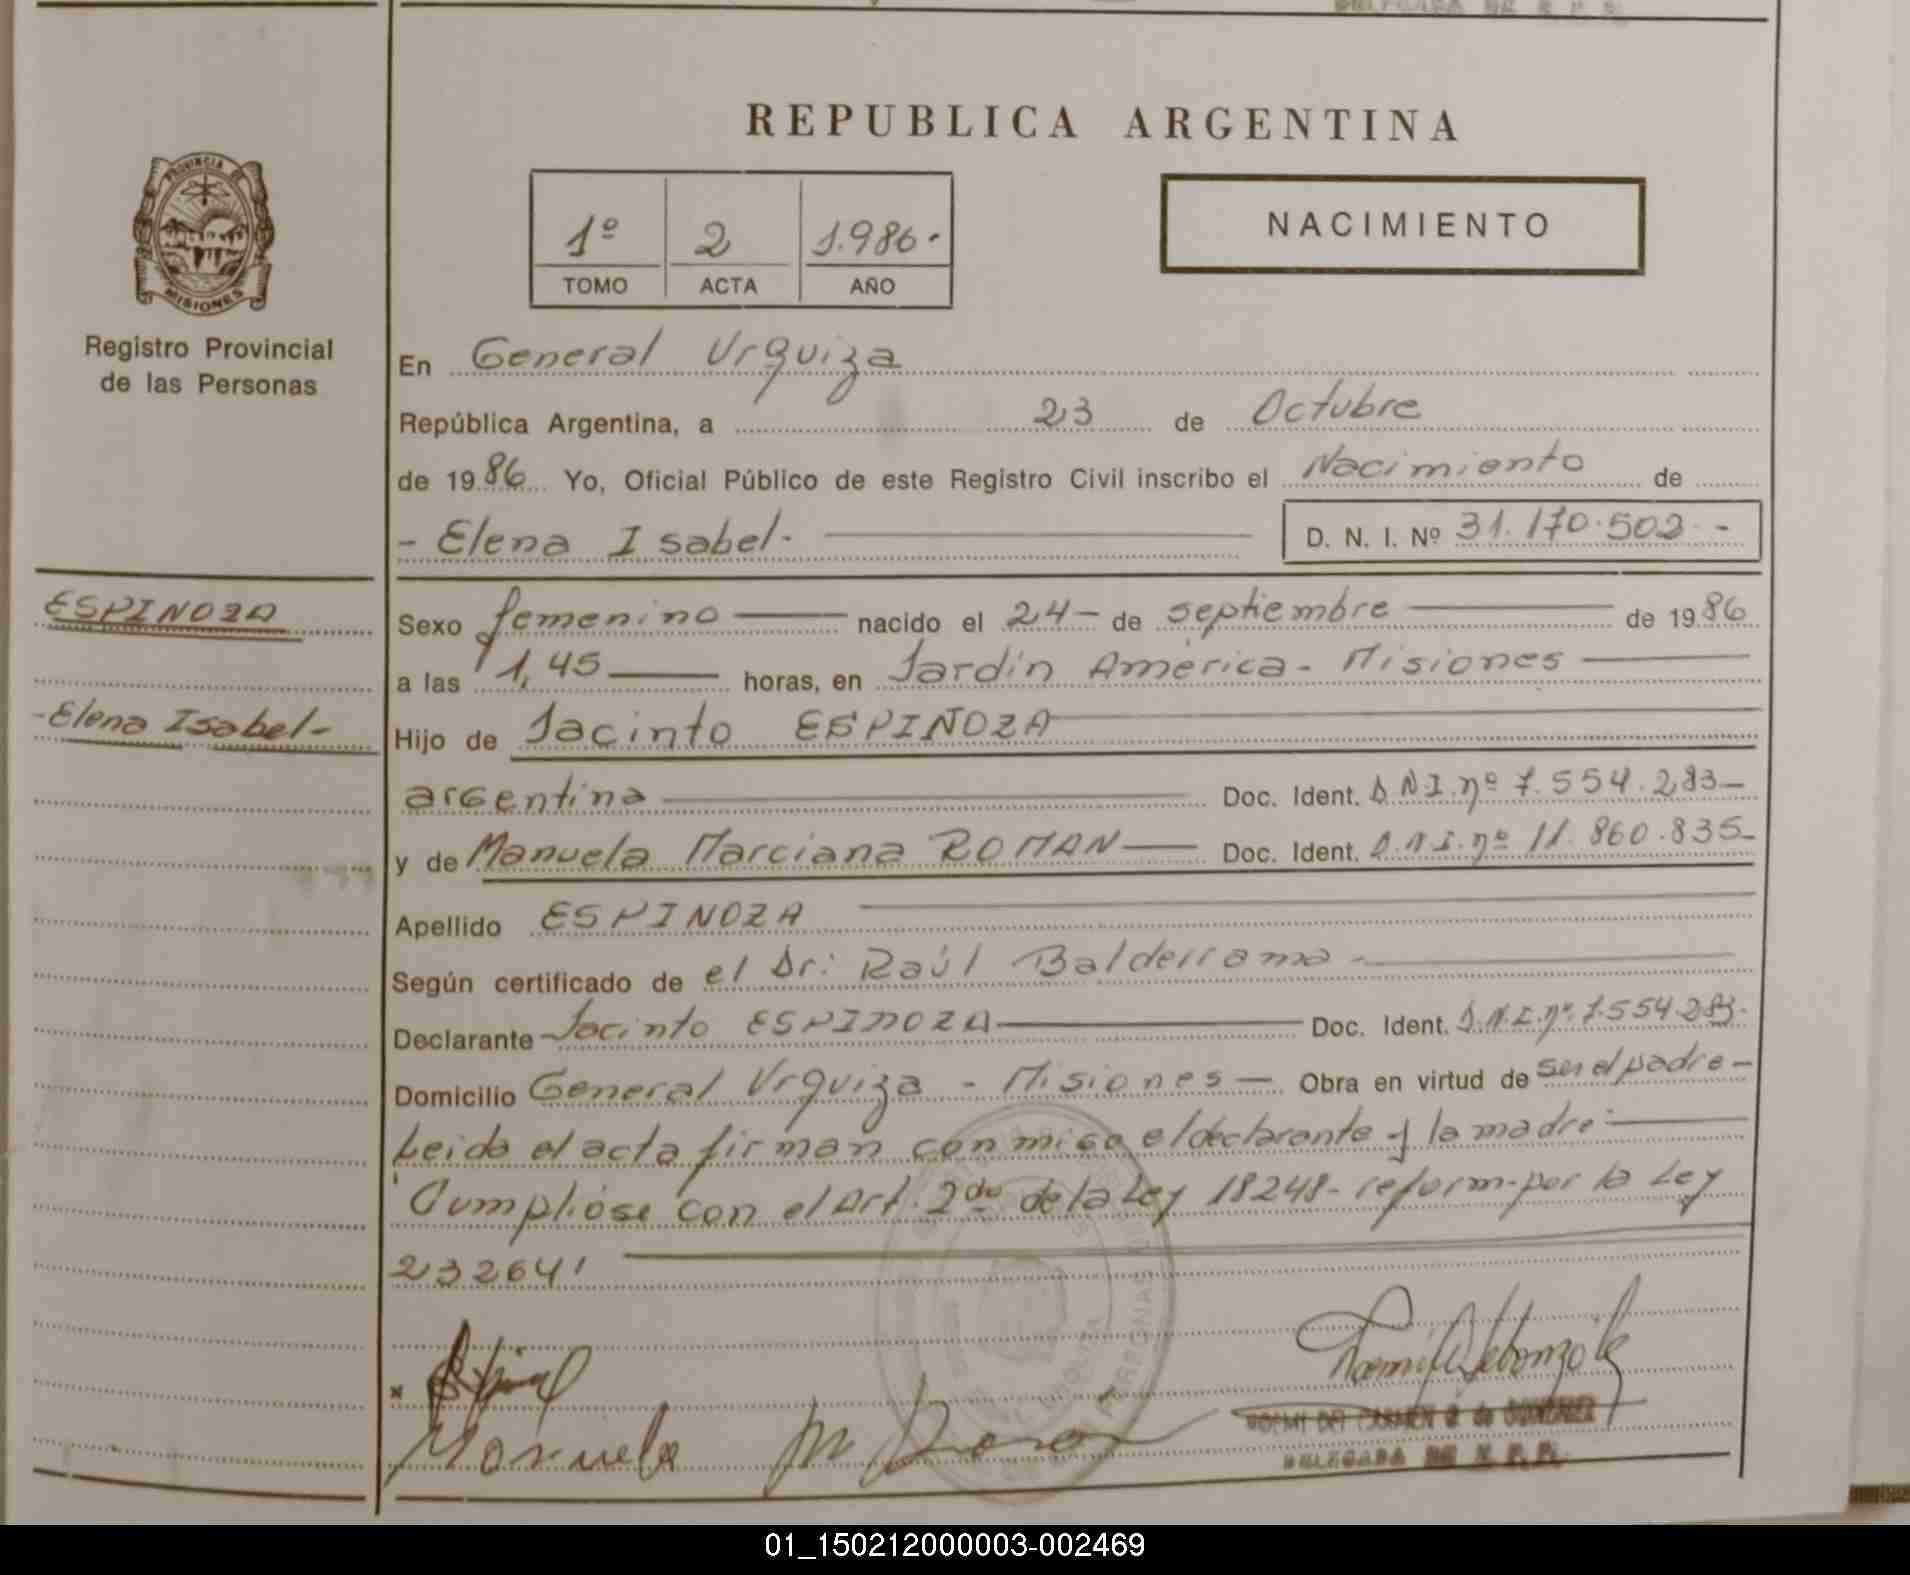 REPUBLICA ARGENTINA
PROVINCIA DE
MISIONES
Registro Provincial
de las Personas
1º 2 1.986.
TOMO ACTA AÑO
NACIMIENTO
En General Urquiza
República Argentina, a 23 de Octubre
de 1986 Yo, Oficial Público de este Registro Civil inscribo el Nacimiento de
- Elena Isabel.- D. N. I. Nº 31.170.502.-
ESPINOZA
-Elena Isabel-
Sexo femenino nacido el 24- de septiembre de 1986
a las 1,45 horas, en Jardín América - Misiones
Hijo de Jacinto ESPINOZA
argentina Doc. Ident. D.N.I. nº 7.554.283-
y de Manuela Marciana ROMAN Doc. Ident. D.N.I. nº 11.860.835-
Apellido ESPINOZA
Según certificado de el Dr: Raúl Balderrama -
Declarante Jacinto ESPINOZA Doc. Ident. D.N.I. nº 7.554.283-
Domicilio General Urquiza - Misiones - Obra en virtud de ser el padre -
Leida el acta firman conmigo el declarante y la madre
Cumplióse con el Art. 2do de la Ley 18248- reform-por la Ley
23264
Manuela M Roman
DELEGADA DE R. P. P.
01_150212000003-002469